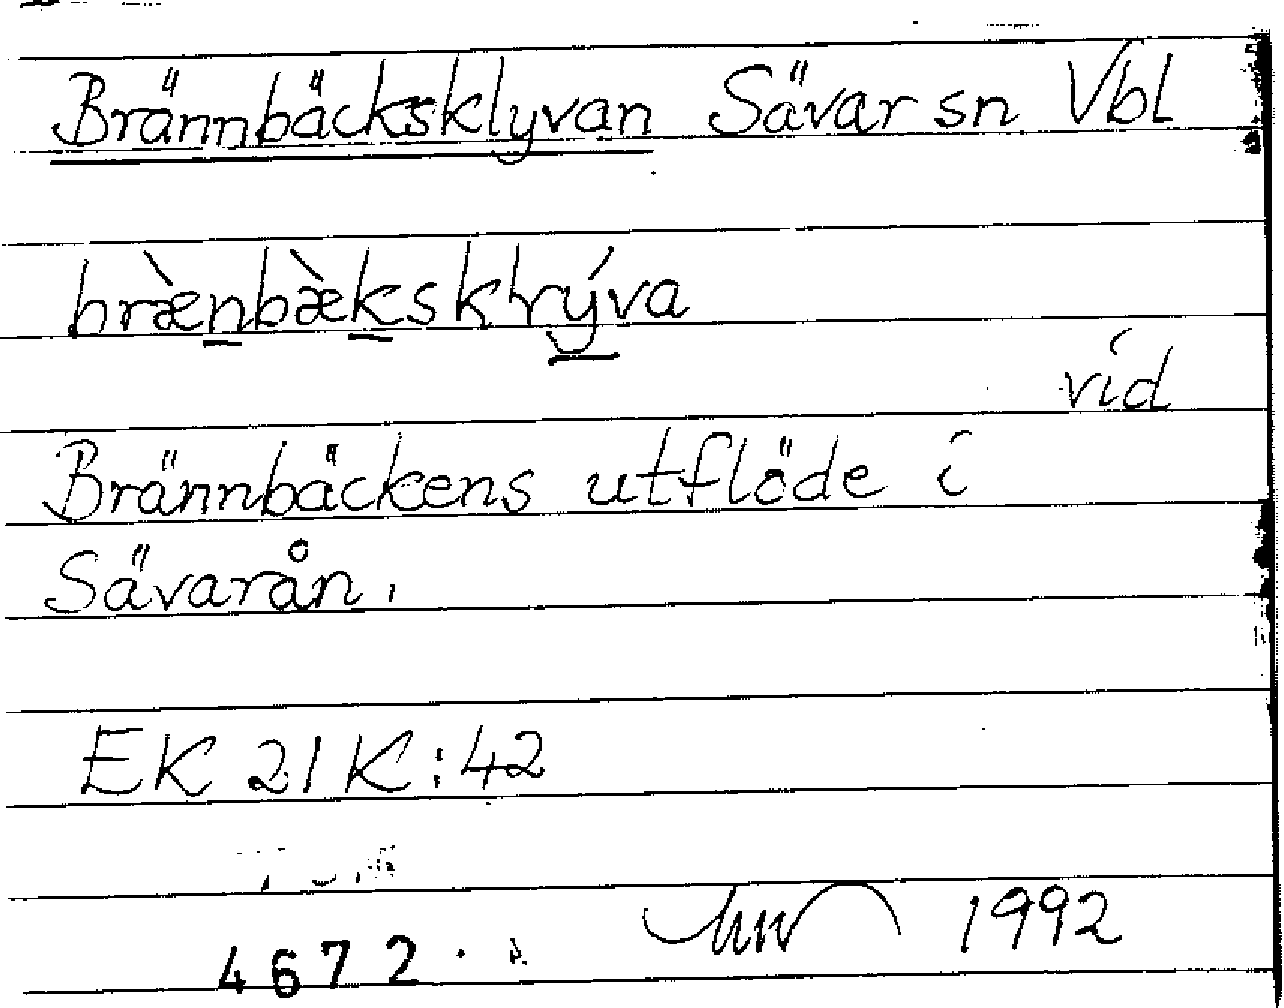 Brännbäcksklyvan Sävar sn Vbl
vid
Brännbäckens utflöde i
Sävarån.
EK 21K:42
1992
4672